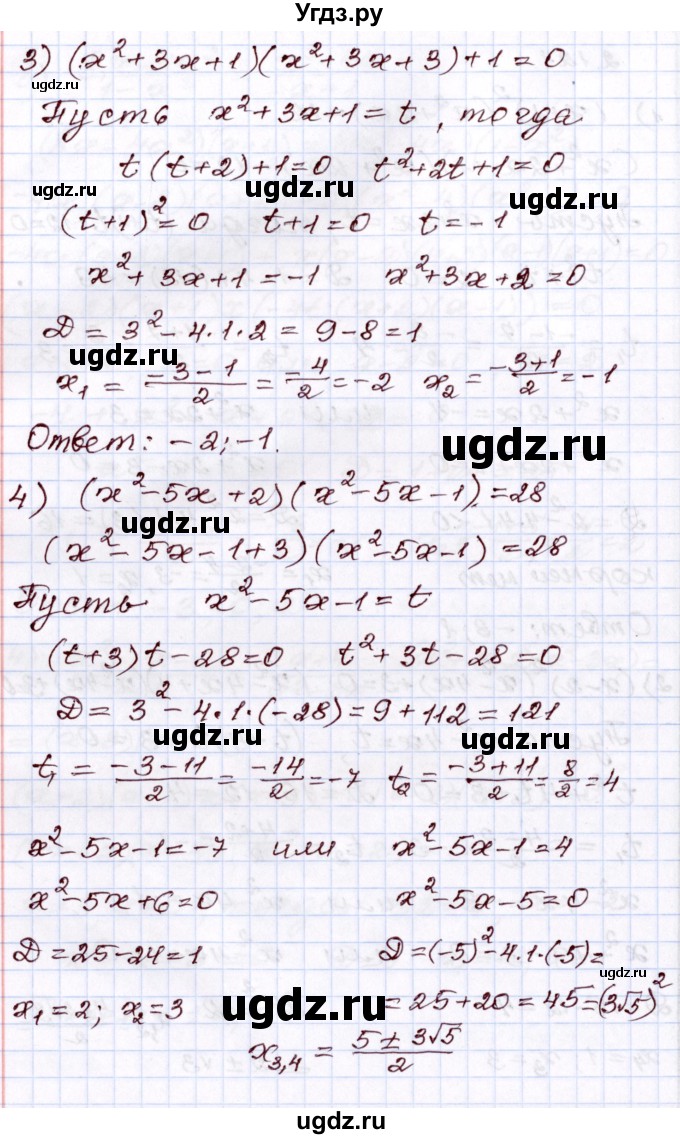 Угдз.ру
3) (x²+3x+1)(x²+3x+3)+1=0
Пусть x²+3x+1=t, тогда
t(t+2)+1=0 t²+2t+1=0
ugdz.ru ugdz.ru ugdz.ru
(t+1)²=0 t+1=0 t=-1
x²+3x+1=-1 x²+3x+2=0
Д=3²-4·1·2=9-8=1
ugdz.ru
x₁=(-3-1)/2=-4/2=-2 x₂=(-3+1)/2=-1
Ответ: -2;-1.
ugdz.ru ugdz.ru
4) (x²-5x+2)(x²-5x-1)=28
ugdz.ru ugdz.ru
(x²-5x-1+3)(x²-5x-1)=28
Пусть x²-5x-1=t
(t+3)t-28=0 t²+3t-28=0
Д=3²-4·1·(-28)=9+112=121
ugdz.ru ugdz.ru
t₁=(-3-11)/2=-14/2=-7 t₂=(-3+11)/2=8/2=4
x²-5x-1=-7 или x²-5x-1=4
ugdz.ru ugdz.ru
x²-5x+6=0 x²-5x-5=0
Д=25-24=1 Д=(-5)²-4·1·(-5)=
ugdz.ru
x₁=2; x₂=3 =25+20=45=(3√5)²
ugdz.ru ugdz.ru
x₃,₄=(5±3√5)/2
ugdz.ru